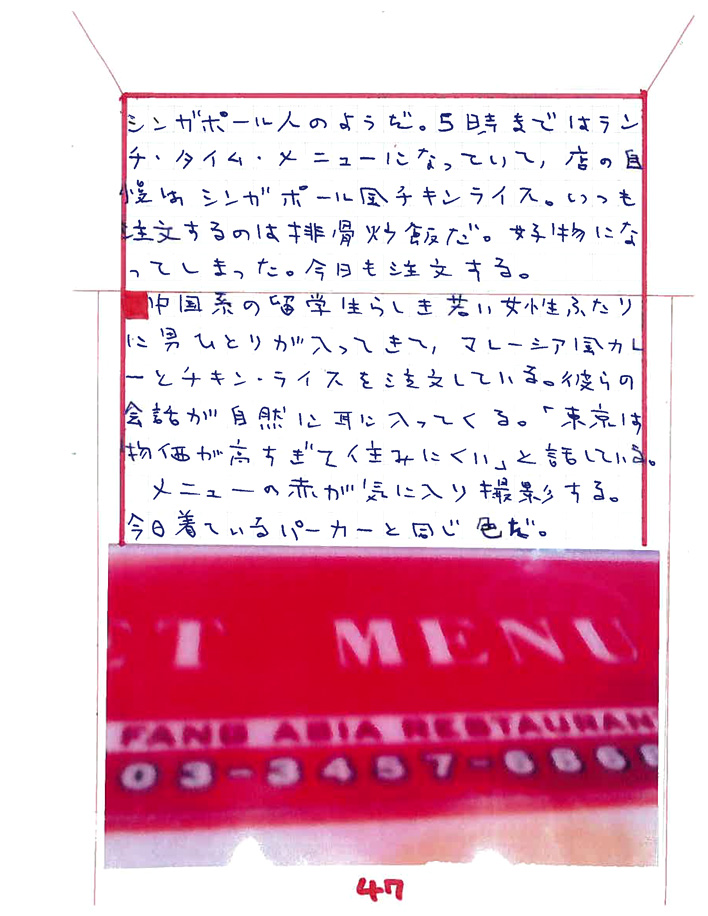 シンガポール人のようだ。5時まではラン
チ・タイム・メニューになっていて、店の自
慢は シンガポール風チキンライス。いつも
注文するのは排骨炒飯だ。好物にな
ってしまった。今日も注文する。
中国系の留学生らしき若い女性ふたり
に男ひとりが入ってきて、マレーシア風カレ
ーとチキン・ライスを注文している。彼らの
会話が自然に耳に入ってくる。「東京は
物価が高すぎて住みにくい」と話している。
メニューの赤が気に入り撮影する。
今日着ているパーカーと同じ色だ。
ET MENU
FANG ASIA RESTAURAN
03-3457-6
47